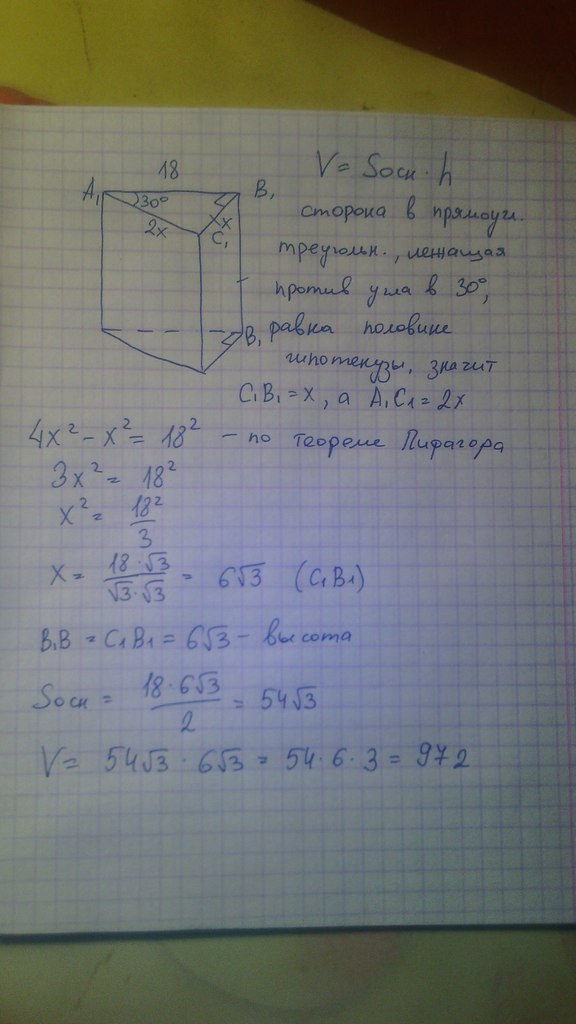 18
V = Sосн · h
A₁
30°
B₁
2x
x
C₁
сторона в прямоуг.
треугольн., лежащая
против угла в 30°,
B₁
равна половине
гипотенузы, значит
C₁B₁ = x, а A₁C₁ = 2x
4x² - x² = 18² - по теореме Пифагора
3x² = 18²
x² = 18²/3
x = 18·√3/√3·√3 = 6√3 (C₁B₁)
B₁B = C₁B₁ = 6√3 - высота
Sосн = 18·6√3/2 = 54√3
V = 54√3 · 6√3 = 54·6·3 = 972